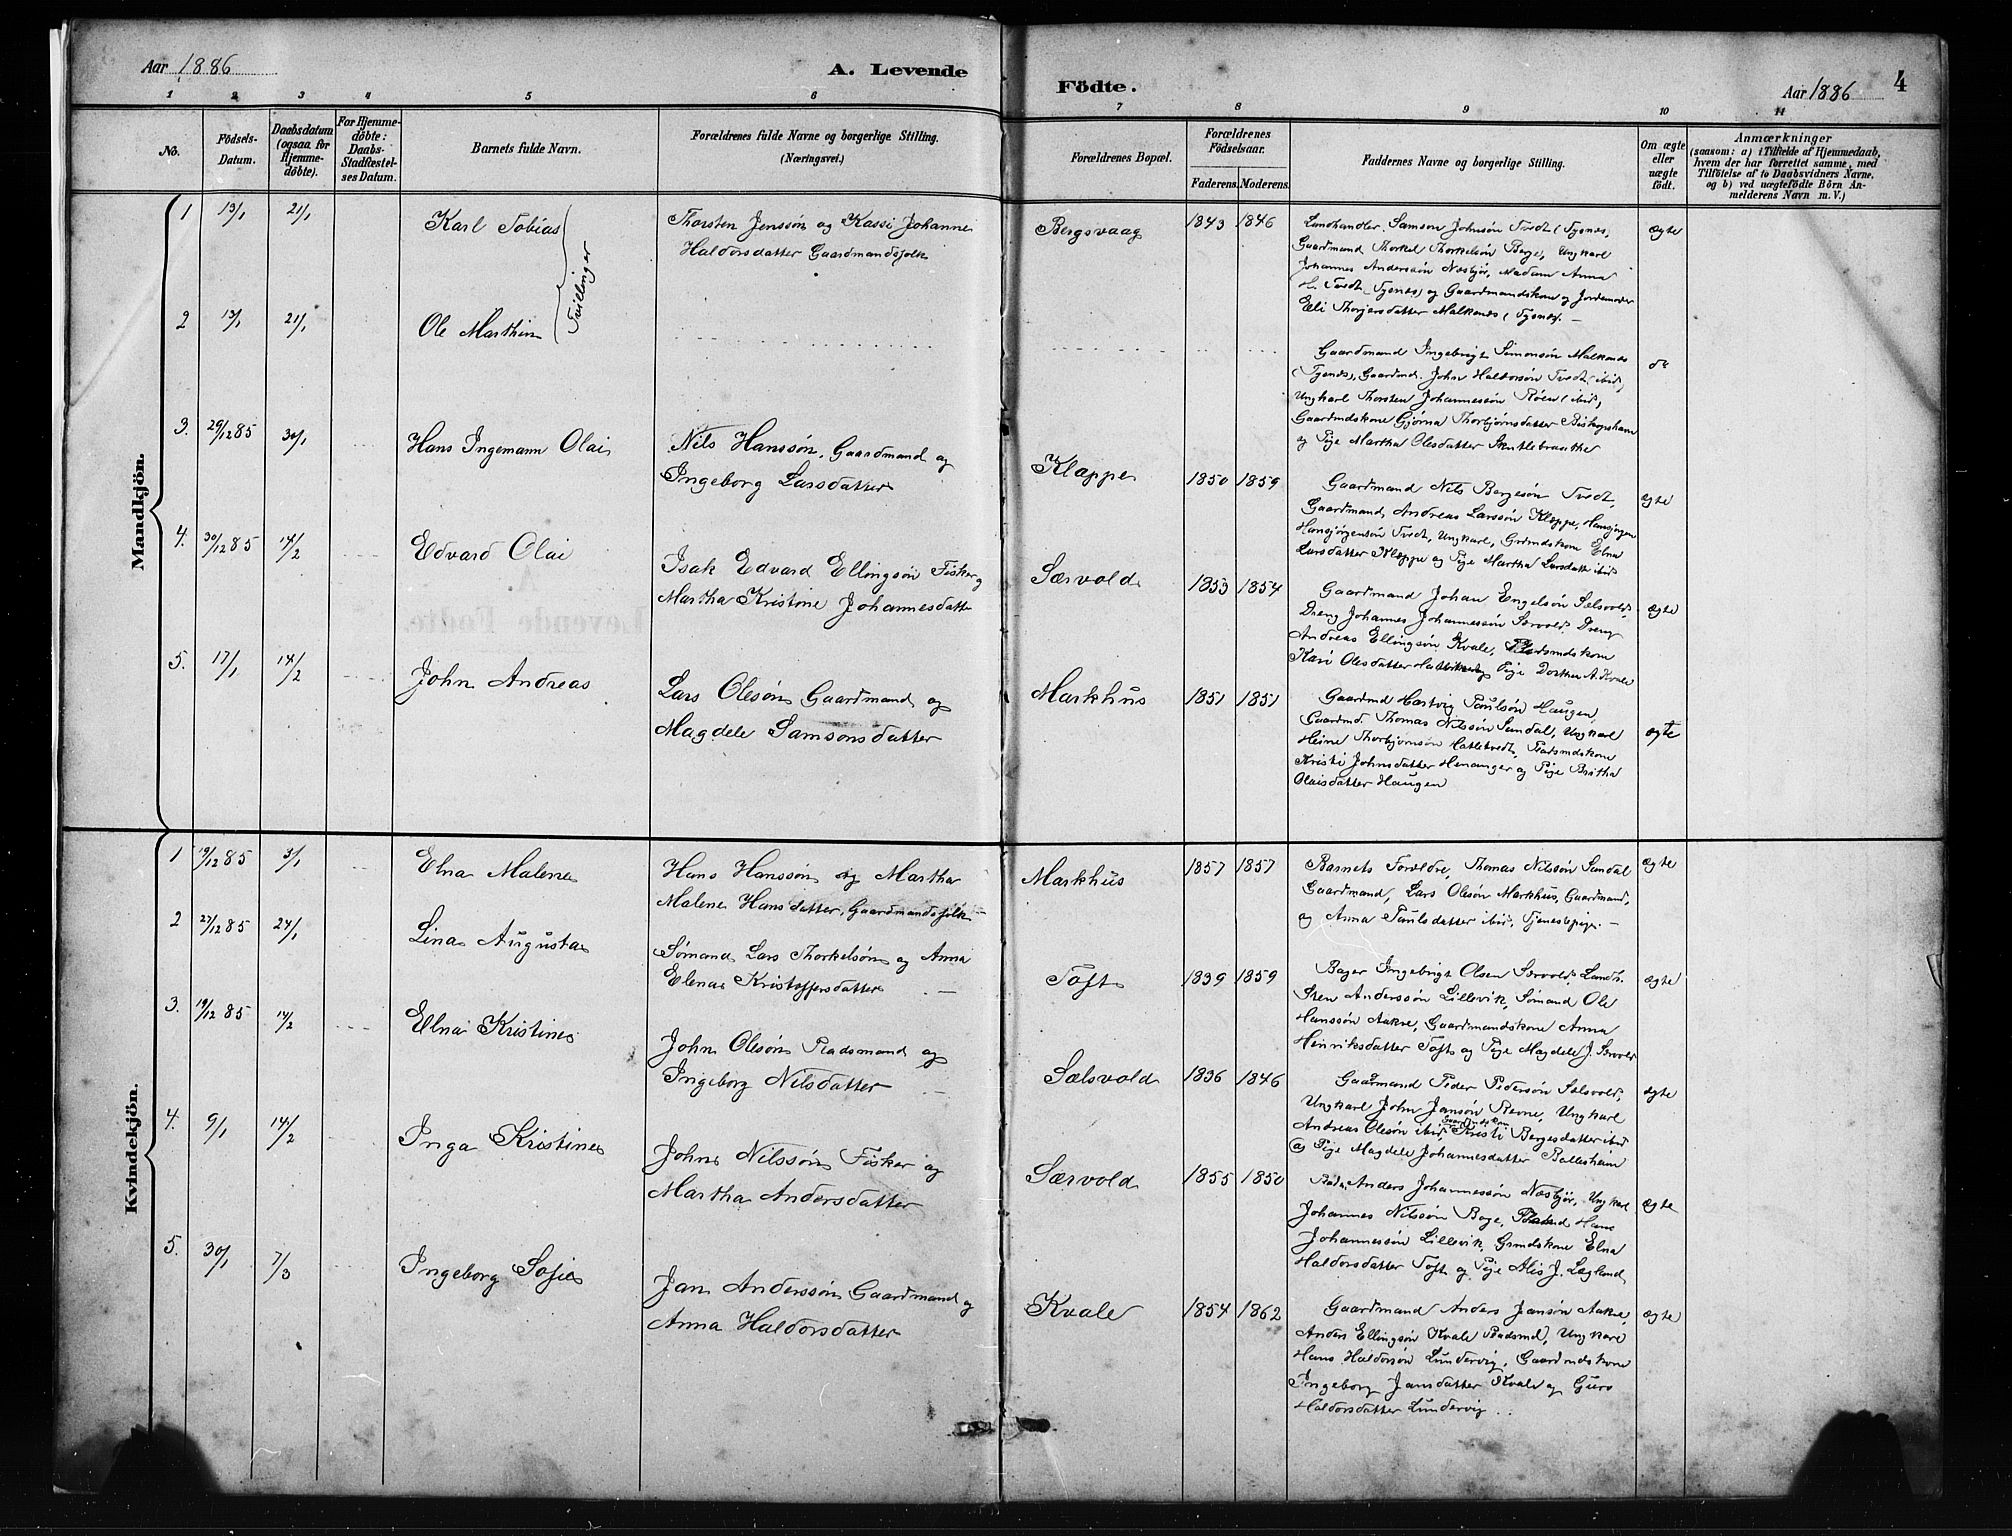 Aar 1886
A. Levende
Födte.
Aar 1886
4
1 2 3 4 5 6 7 8 9 10 11
No.
Födsels-Datum.
Daabsdatum (ogsaa for Hjemmedöbte).
For Hjemmedöbte: Daabs-Stadfæstelses Datum.
Barnets fulde Navn.
Forældrenes fulde Navne og borgerlige Stilling.
(Næringsvei.)
Forældrenes Bopæl.
Forældrenes Födselsaar.
Faderens. Moderens.
Faddernes Navne og borgerlige Stilling.
Om ægte eller uægte födt.
Anmærkninger
(saasom: a) i Tilfælde af Hjemmedaab, hvem der har forrettet samme, med Tilföielse af to Daabsvidners Navne, og b) ved uægtefödte Börn Anmelderens Navn m. V.)
Mandkjön.
1 13/1 21/1 Karl Tobias
Tvillinger
Thorsten Jenssøn og Kassi Johanne
Haldorsdatter Gaardmandsfolk
Bergsvaag 1843 1846
Landhandler Samson Johnsøn Tvedt (Tysnes,
Gaardmand Thorkel Thorkelsøn Berge, Ungkarl
Johannes Anderssøn Næsbjør, Madam Anna
H. Tvedt (Tysnes) og Gaardmandskone og Jordemoder
Eli Thorgersdatter Malkenes (Tysnes). -
ægte
2 13/1 21/1 Ole Marthin
Gaardmand Ingebrigt Simonsøn Malkenes
(Tysnes), Gaardmd. John Haldorsøn Tvedt (ibid)
Ungkarl Thorsten Johannessøn Røen (ibid),
Gaardmdskone Gjørna Thorbjørnsdatter Biskopshavn
og Pige Martha Olesdatter
do
3. 29/12 85 30/1 Hans Ingemann Olai
Nils Hanssøn, Gaardmand og
Ingeborg Larsdatter
Kleppe 1850 1859
Gaardmand Nils Børgesøn Tvedt,
Gaardmand Andreas Larssøn Kleppe,
Hansjørgensøn Tvedt, Ungkarl, Grdmdskone Elna
Larsdatter Kleppe og Pige Martha Larsdatter ibid
ægte
4. 30/12 85 14/2 Edvard Olai
Isak Edvard Ellingsøn Fisker og
Martha Kristine Johannesdatter
Særvold 1853 1854
Gaardmand Johan Engelsøn Sælsvold,
Dreng Johannes Johannessøn Særvold, Dreng
Andreas Ellingsøn Kvale, Pladsmdskone
Kari Olesdatter Hatlvikedg Pige Dorthea A. Kvale
ægte
5. 17/1 14/2 John Andreas
Lars Olesøn Gaardmand og
Magdele Samsonsdatter
Markhus 1851 1851
Gaardmd Hartvig Paulsøn Haugen,
Gaardmd. Thomas Nilssøn Sundal, Ungkarl
Heine Thorbjørnsøn Hatletvedt, Pladsmdskone
Kristi Johnsdatter Henanger og Pige Britha
Olaisdatter Haugen
ægte
Kvindekjön.
1 19/12 85 3/1 Elna Malene
Hans Hanssøn og Martha
Malene Hansdatter, Gaardmandsfolk -
Markhus 1857 1857
Barnets Forældre, Thomas Nilssøn Sandal
Gaardmand, Lars Olesøn Markhus, Gaardmand,
og Anna Paulsdatter ibid, Tjenestepige. -
ægte
2 27/12 85 24/1 Lina Augusta
Sømand Lars Thorkelsøn og Anna
Elena Kristoffersdatter -
Toft 1839 1859
Bager Ingebrigt Olsen Særvold, Landh.
Sren Anderssøn Lillevik, Sømand Ole
Hanssøn Aakre, Gaardmandskone Anna
Henriksdatter Toft og Pige Magdele J. Særvold
ægte
3. 19/12 85 14/2 Elna Kristine
John Olesøn Pladsmand og
Ingeborg Nilsdatter -
Sælsvold 1836 1846
Gaarmand Peder Pedersøn Sælsvold,
Ungkarl John Jansøn Revne, Ungkarl
Andreas Olesøn ibid, Gaardmdskone Kristi Børgesdatter ibid
og Pige Magdele Johannesdatter Ballesheim
ægte
4. 9/1 14/2 Inga Kristine
John Nilssøn Fisker og
Martha Andersdatter
Særvold 1855 1850
Anders Johannessøn Næsbjør, Ungkarl
Johannes Nilssøn Boge, Hans
Johannessøn Lillevik, Grmdskone Elna
Haldorsdatter Toft og Pige Alis J. Legland
ægte
5. 30/1 7/3 Ingeborg Sofie
Jan Anderssøn Gaardmand og
Anna Haldorsdatter
Kvale 1854 1862
Gaardmand Anders Jansøn Aakre,
Anders Ellingsøn Kvale Pladsmd, Ungkarl
Hans Haldorsøn Lundervig, Gaardmdskone
Ingeborg Jansdatter Kvale og Guro
Haldorsdatter Lundervig
ægte